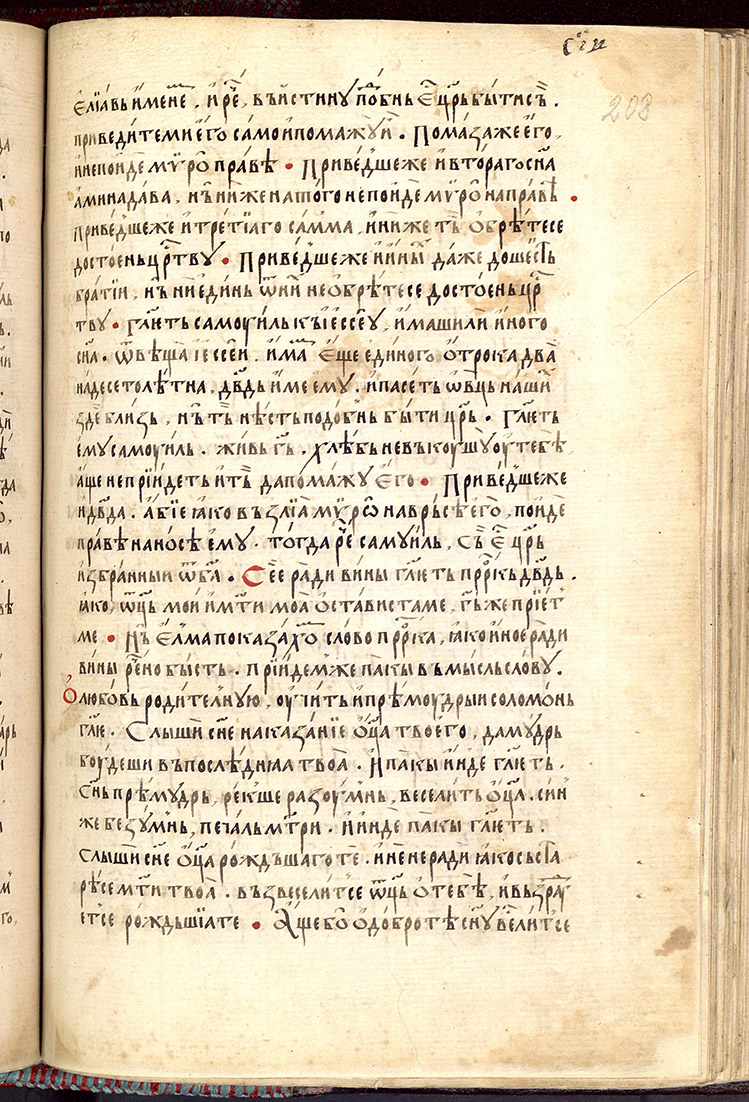 сѳи
208
е҆лїа́вь и҆́мене , и҆ рⷱ҇е , въи́стину пⷣобнь е҆ⷭ҇ цр҃ь бы́ти съ .
приведи́те ми е҆го̀ самои̂ помажу и҆̀ . Пома́за же е҆го̀ ,
и҆ не по́йде мѵ́ро пра́вѣ • Приве́дше же и҆ втора́го сн҃а
а҆минада́ва , нъ̀ ни́же на то́го не по́йде мѵ́ро на пра́вѣ •
приве́дше же и҆ тре́тїаго са́мма , и҆ ни́же тъ̀ ѻ҆брѣ́тесе
досто́ень црⷭ҇тву • Приве́дше же и҆ и҆ны́ⷯ да́же до ше́сть
бра́тїи , нъ̀ ни е҆ди́нь ѿ ни́ⷯ не ѻ҆брѣ́тесе досто́ень црⷭ҇
тву • гл҃ють самоуи́ль къ і҆ессе́ѹ , и҆́маши ли и҆но́го
сн҃а . ѿвѣща̀ і҆ессе́и . и҆́маⷨ е҆́ще е҆ди́ного ѻ҆́трока два̀
на́десетолѣ́тна , дв҃дь и҆́ме е҆мꙋ̀ . и҆ пасе́ть ѻ҆́вць на́шиⷯ
здѐ бли́зь , нъ̀ тъ̀ нѣ́сть подо́бнь бы́ти цр҃ь . Гл҃еть
е҆мꙋ̀ самоуи́ль . жи́вь гь҃ , хлѣ́бь не въкоушꙋ̀ ѹ҆ тебѐ ,
а҆́ще не прїи́деть и҆ тъ̀ да пома́жу е҆го̀ • Приве́дше же
и҆ дв҃да . а҆́бїе ꙗ҆́ко възлїа̀ мѵ́ро на врь́сѣ е҆го̀ , по́йде
пра́вѣ на но́сѣ е҆мꙋ̀ . тогда̀ рⷱ҇е саму́иль , съ е҆ⷭ҇ цр҃ь
и҆збра́нный ѿ бг҃а . Сегѐ ра́ди вины̀ гл҃еть прⷪ҇ркь дв҃дь .
ꙗ҆́ко , ѿць мо́и и҆ мт҃и моа̀ ѻ҆ста́виста ме , гь҃ же прїе́ть
ме • Нъ̀ е҆лма̀ показа́хоⷨ сло́во прⷪ҇рка , ꙗ҆́ко и҆но́е ра́ди
вины̀ рече́но бы́сть . прїиде́мже па́кы въ мы́сль сло́ву .
Ѻ҆ любо́вь роди́телную , ѹ҆чи́ть и҆ прѣмоу́дрыи соломо́нь
гл҃е . Слы́ши сн҃е наказа́нїе ѻ҆ц҃а твоего̀ , да му́дрь
бу́деши въ послѣ́днꙗа твоа̀ . И҆ па́кы и҆́нде гл҃еть .
Сн҃ь прѣму́дрь , ре́кше разоу́мнь , весели́ть ѻ҆ц҃а . сн҃ь
же безу́мнь , печа́ль мт҃ри . и҆ и҆́нде па́кы гл҃еть .
слы́ши сн҃е ѻ҆ц҃а ро́ждьшаго те . и҆ не неради̂ ꙗ҆́ко съста
рѣ́се мт҃и твоа̀ . възвесели́тсе ѿць ѻ҆ тебѣ̀ , и҆ възраⷣу
е́тсе ро́ждьшїа те • А҆́ще бо ѻ҆ добро́тѣ сн҃у вели́тсе